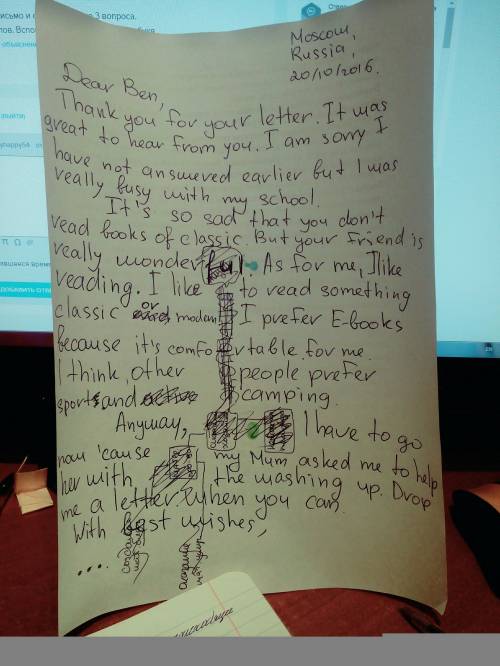 исьмо и
3 вопроса.
Moscow,
Russia,
20/10/2016.
Dear Ben,
Thank you for your letter. It was
great to hear from you. I am sorry I
have not answered earlier but I was
really busy with my school.
It's so sad that you don't
read books of classic. But your friend is
really wonderful. As for me, I like
reading. I like to read something
classic or modern. I prefer E-books
because it's comfortable for me.
I think, other people prefer
sports and camping.
Anyway, I have to go
now 'cause my Mum asked me to help
her with the washing up. Drop
me a letter. When you can.
With best wishes,
....